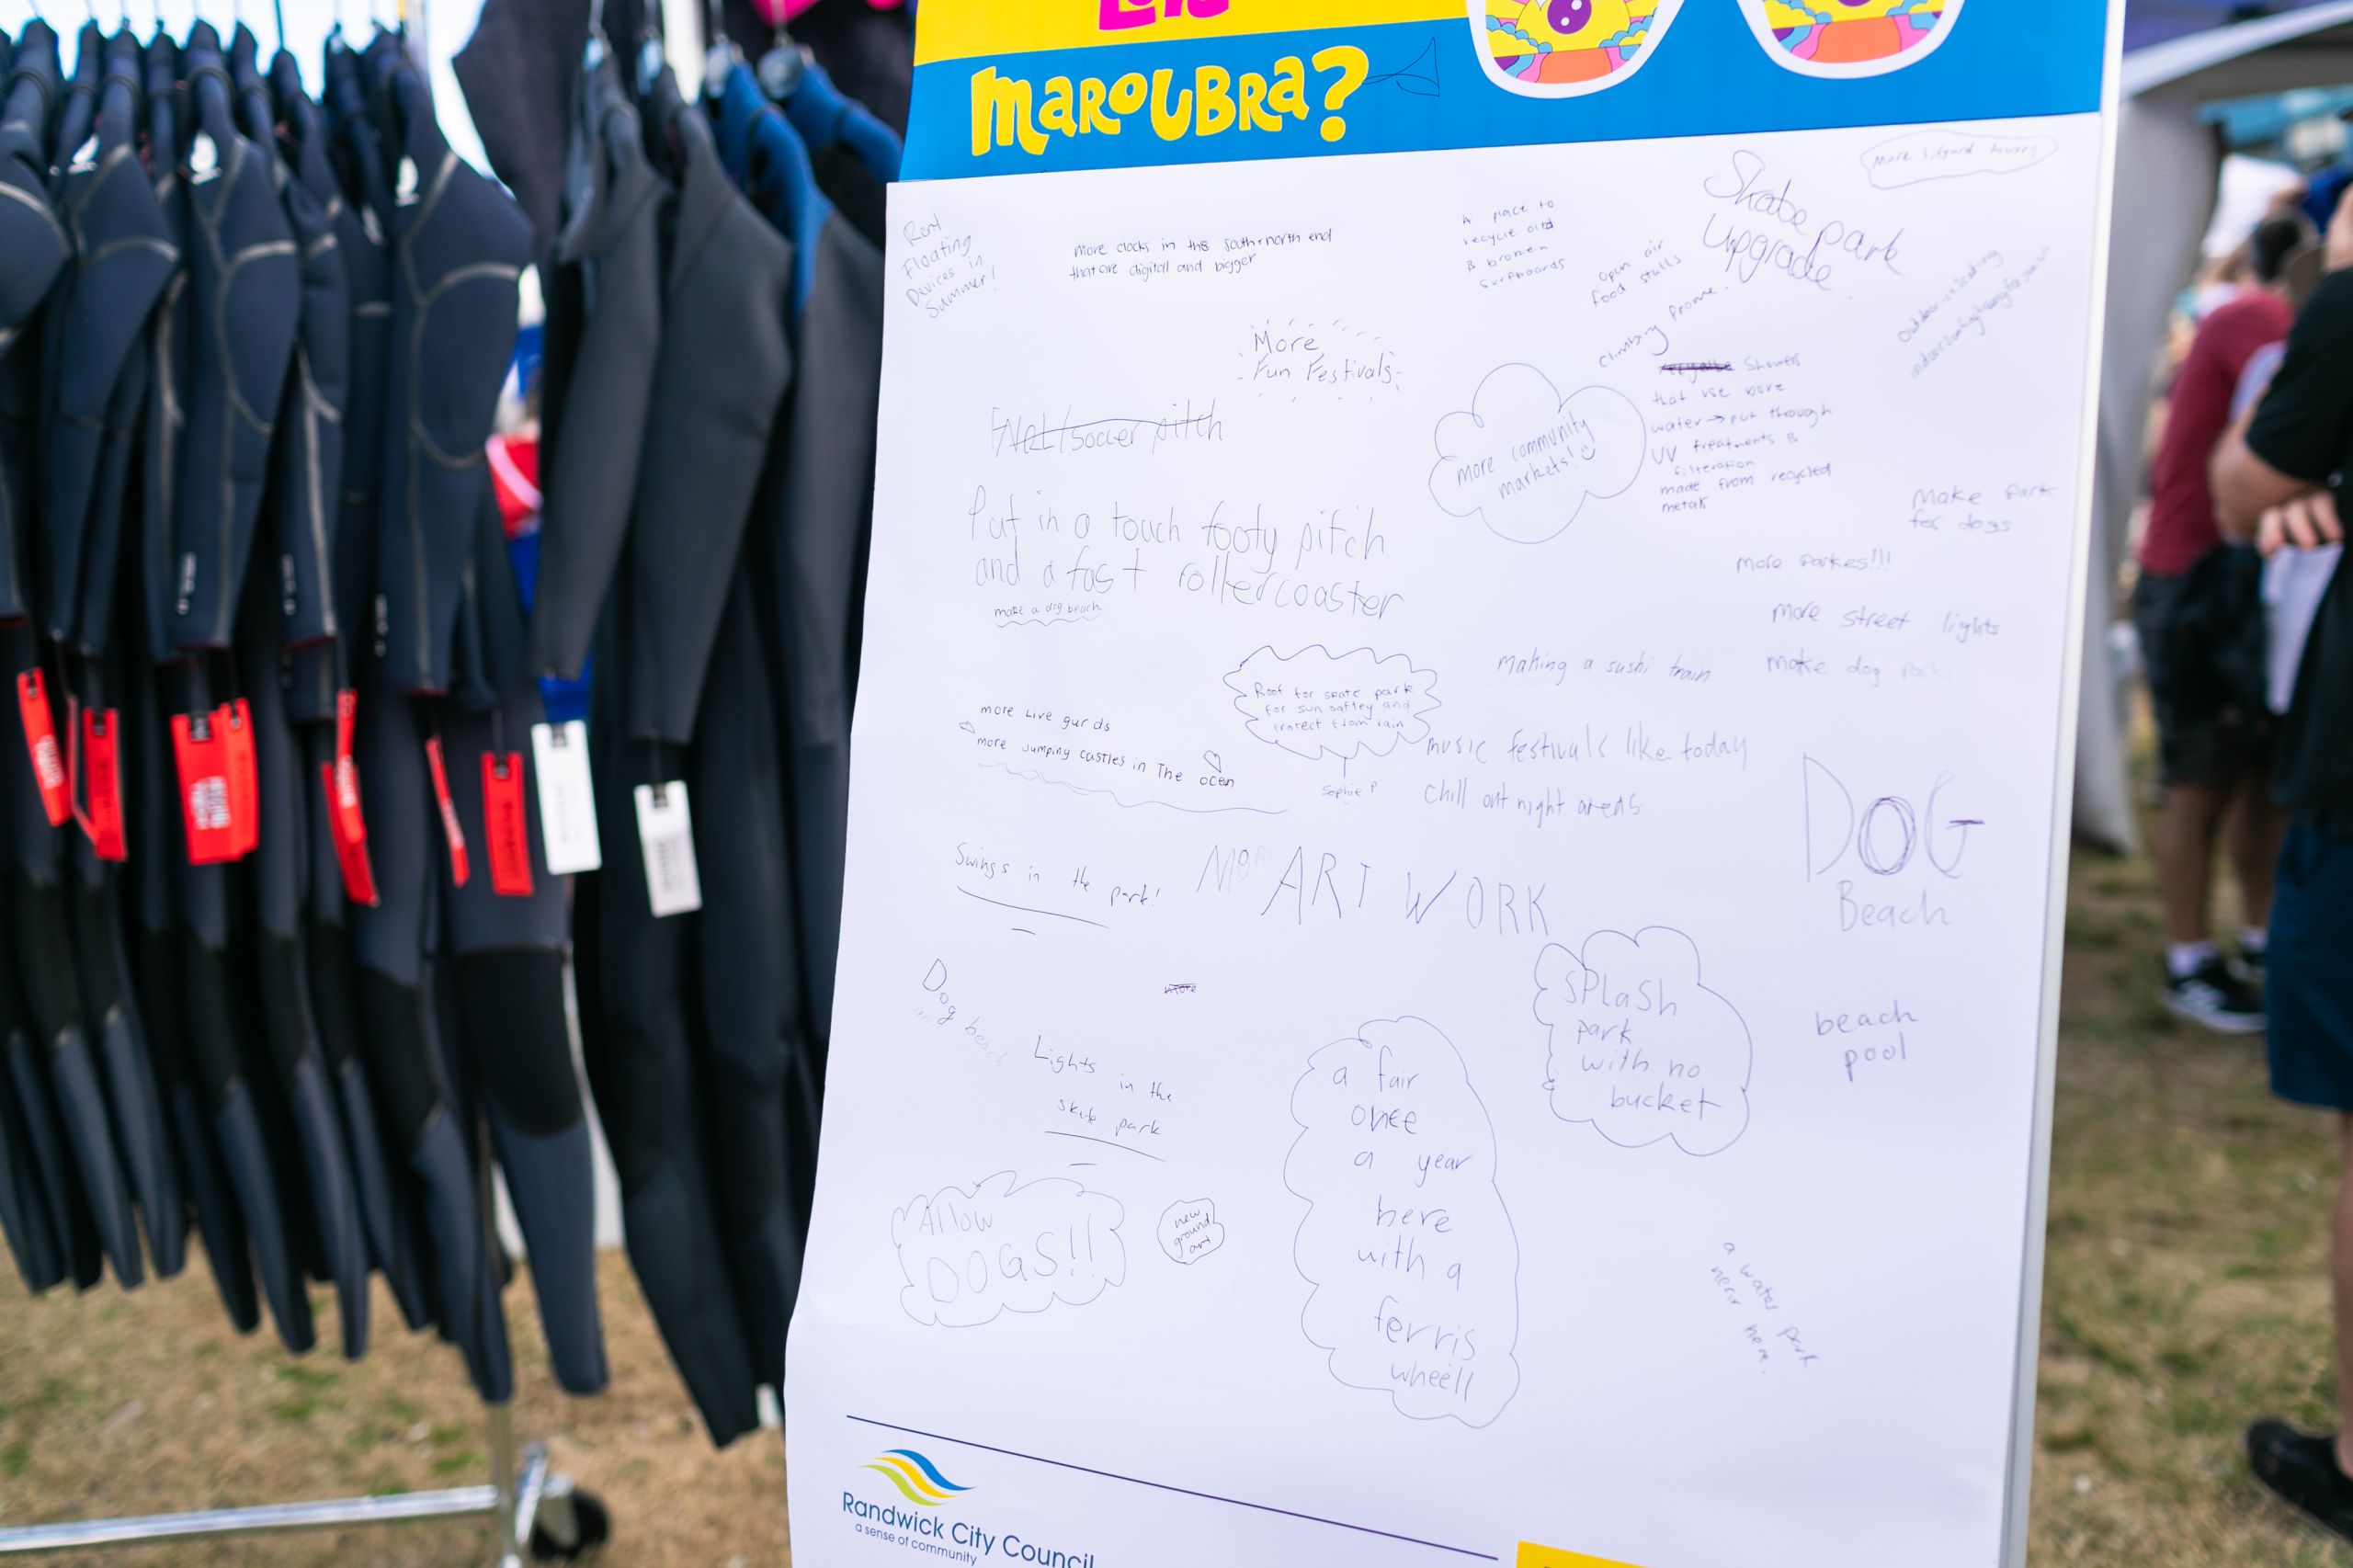 MAROUBRA?
More lifgard towers
Skate park
Upgrade
Rent
Floating
Devices in
Summer!
more clocks in the south+north end
that are digital and bigger
A place to
recycle old
& broken
surfboards
Open air
food stalls
climbing frame
More
Fun Festivals
NRL/soccer pitch
more community
markets!
showers
that use bore
water → put through
UV treatments &
filteration
made from recycled
metals
Make Park
for dogs
Put in a touch footy pitch
and a fast rollercoaster
make a dog beach
more Parkes!!!
more street lights
making a sushi train
make dog park
Roof for skate park
for sun saftey and
protect from rain
Sophie P
more Live gurds
more Jumping castles in The ocen
music festivals like today
chill out night areas
Swings in the park!
More ART WORK
DOG
Beach
Dog beach
more
Lights in the
skate park
SPLaSh
park
with no
bucket
beach
pool
a fair
once
a year
here
with a
ferris
wheell
Allow
DOGS!!
new
ground
art
a water park
near here
Randwick City Council
a sense of community